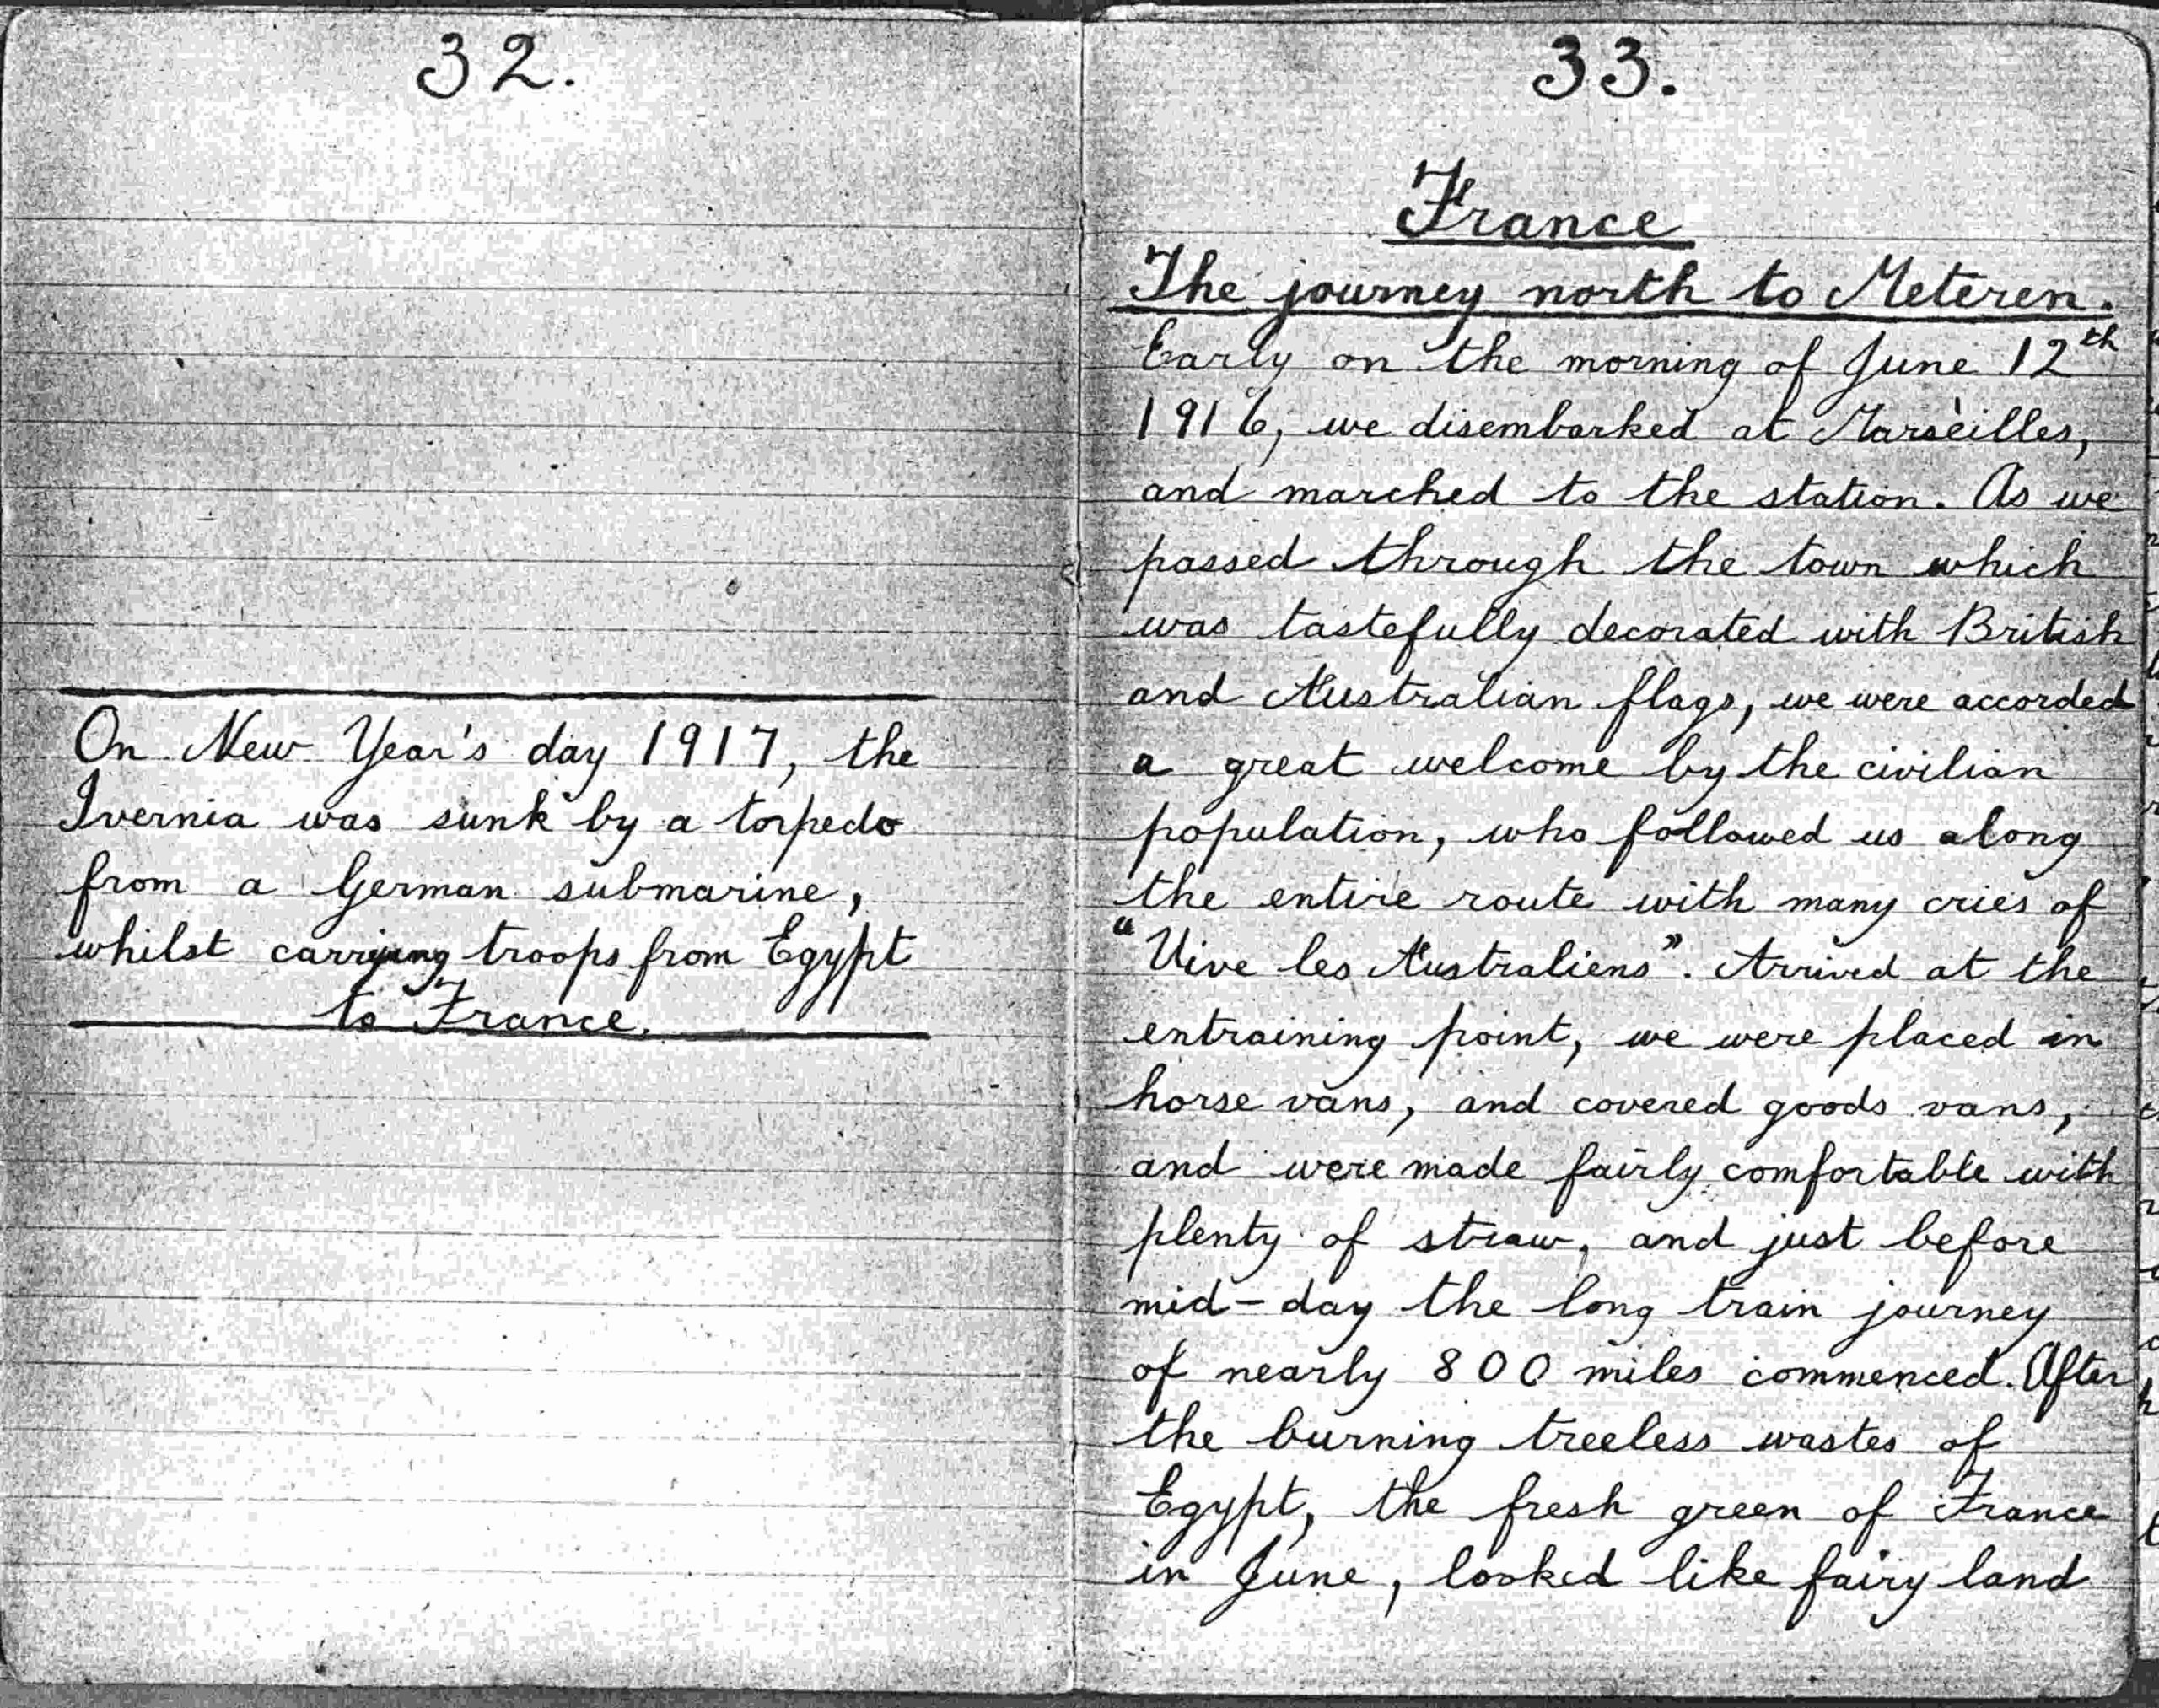 32.
On New Year's day 1917, the
Ivernia was sunk by a torpedo
from a German submarine,
whilst carrying troops from Egypt
to France.
33.
France
The journey north to Meteren.
Early on the morning of June 12th
1916, we disembarked at Marseilles,
and marched to the station. As we
passed through the town which
was tastefully decorated with British
and Australian flags, we were accorded
a great welcome by the civilian
population, who followed us along
the entire route with many cries of
"Vive les Australiens". Arrived at the
entraining point, we were placed in
horse vans, and covered goods vans,
and were made fairly comfortable with
plenty of straw, and just before
mid-day the long train journey
of nearly 800 miles commenced. After
the burning treeless wastes of
Egypt, the fresh green of France
in June, looked like fairy land